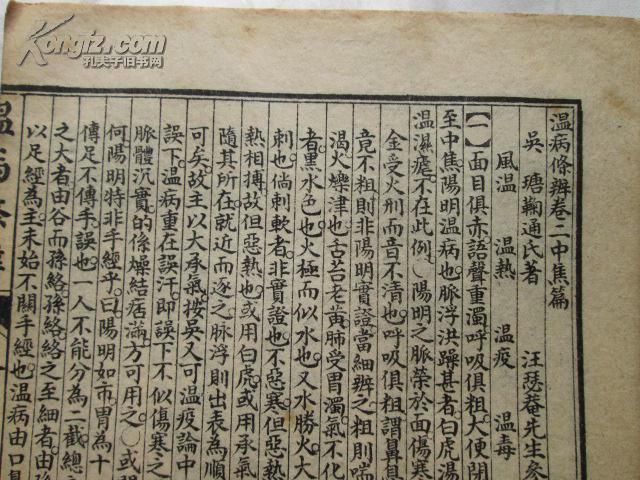 Kongfz.com
孔夫子旧书网
溫病條辨卷二中焦篇
吳瑭鞠通氏著 汪瑟菴先生參
風溫 溫熱 溫疫 溫毒
【一】面目俱赤語聲重濁呼吸俱粗大便閉
至中焦陽明溫病也脈浮洪躁甚者白虎湯
溫濕瘧不在此例）陽明之脈榮於面傷寒
全受火刑而音不清也呼吸俱粗謂鼻息
竟不粗則非陽明實證當細辨之粗則喘
渴火爍津也舌苔老黃肺受胃濁氣不化
者黑水色也火極而似水也又水勝火大
刺也倘刺軟者非實證也不惡寒但惡熱
熱相搏故但惡熱也或用白虎或用承氣
隨其所在就近而逐之脈浮則出表為順
可矣故主以大承氣按吳又可溫疫論中
誤下溫病重在誤汗即誤下不似傷寒之
脈體沉實的係燥結痞滿方可用之〇或問
何陽明特非手經乎曰陽明如市胃為十
傳足不傳手誤也一人不能分為二截總
之大者由谷而孫絡孫絡之至細者由孫
以足經為主未始不關手經也溫病由口鼻